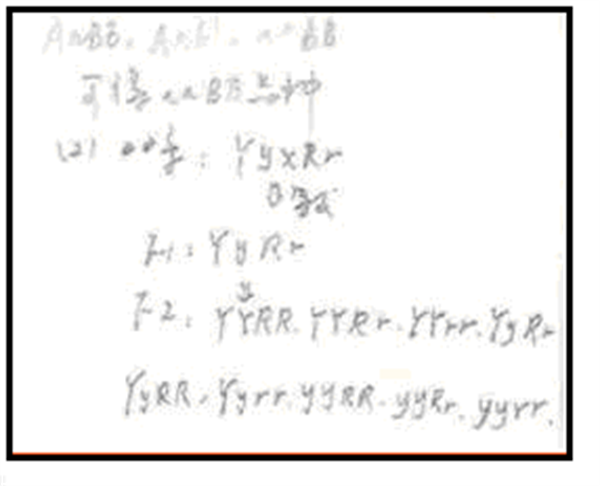 AaBB, AaB
可得aaBB品种
(2) 配子: YyxRr
自交
F1: YyRr
F2: YYRR. YYRr. YYrr. YyRr
YyRR. Yyrr. yyRR. yyRr. yyrr.